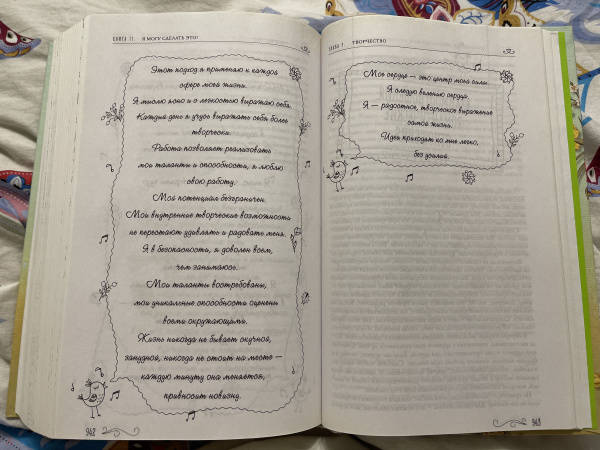 КНИГА II. Я МОГУ СДЕЛАТЬ ЭТО!
Этот подход я применяю к каждой
сфере моей жизни.
Я мыслю ясно и с легкостью выражаю себя.
Каждый день я учусь выражать себя более
творчески.
Работа позволяет реализовать
мои таланты и способности, я люблю
свою работу.
Мой потенциал безграничен.
Мои внутренние творческие возможности
не перестают удивлять и радовать меня.
Я в безопасности, я доволен всем,
чем занимаюсь.
Мои таланты востребованы,
мои уникальные способности оценены
всеми окружающими.
Жизнь никогда не бывает скучной,
занудной, никогда не стоит на месте —
каждую минуту она меняется,
привносит новизну.
948
ГЛАВА 7. ТВОРЧЕСТВО
Мое сердце — это центр моей силы.
Я следую велению сердца.
Я — радостное, творческое выражение
самой жизни.
Идеи приходят ко мне легко,
без усилий.
949